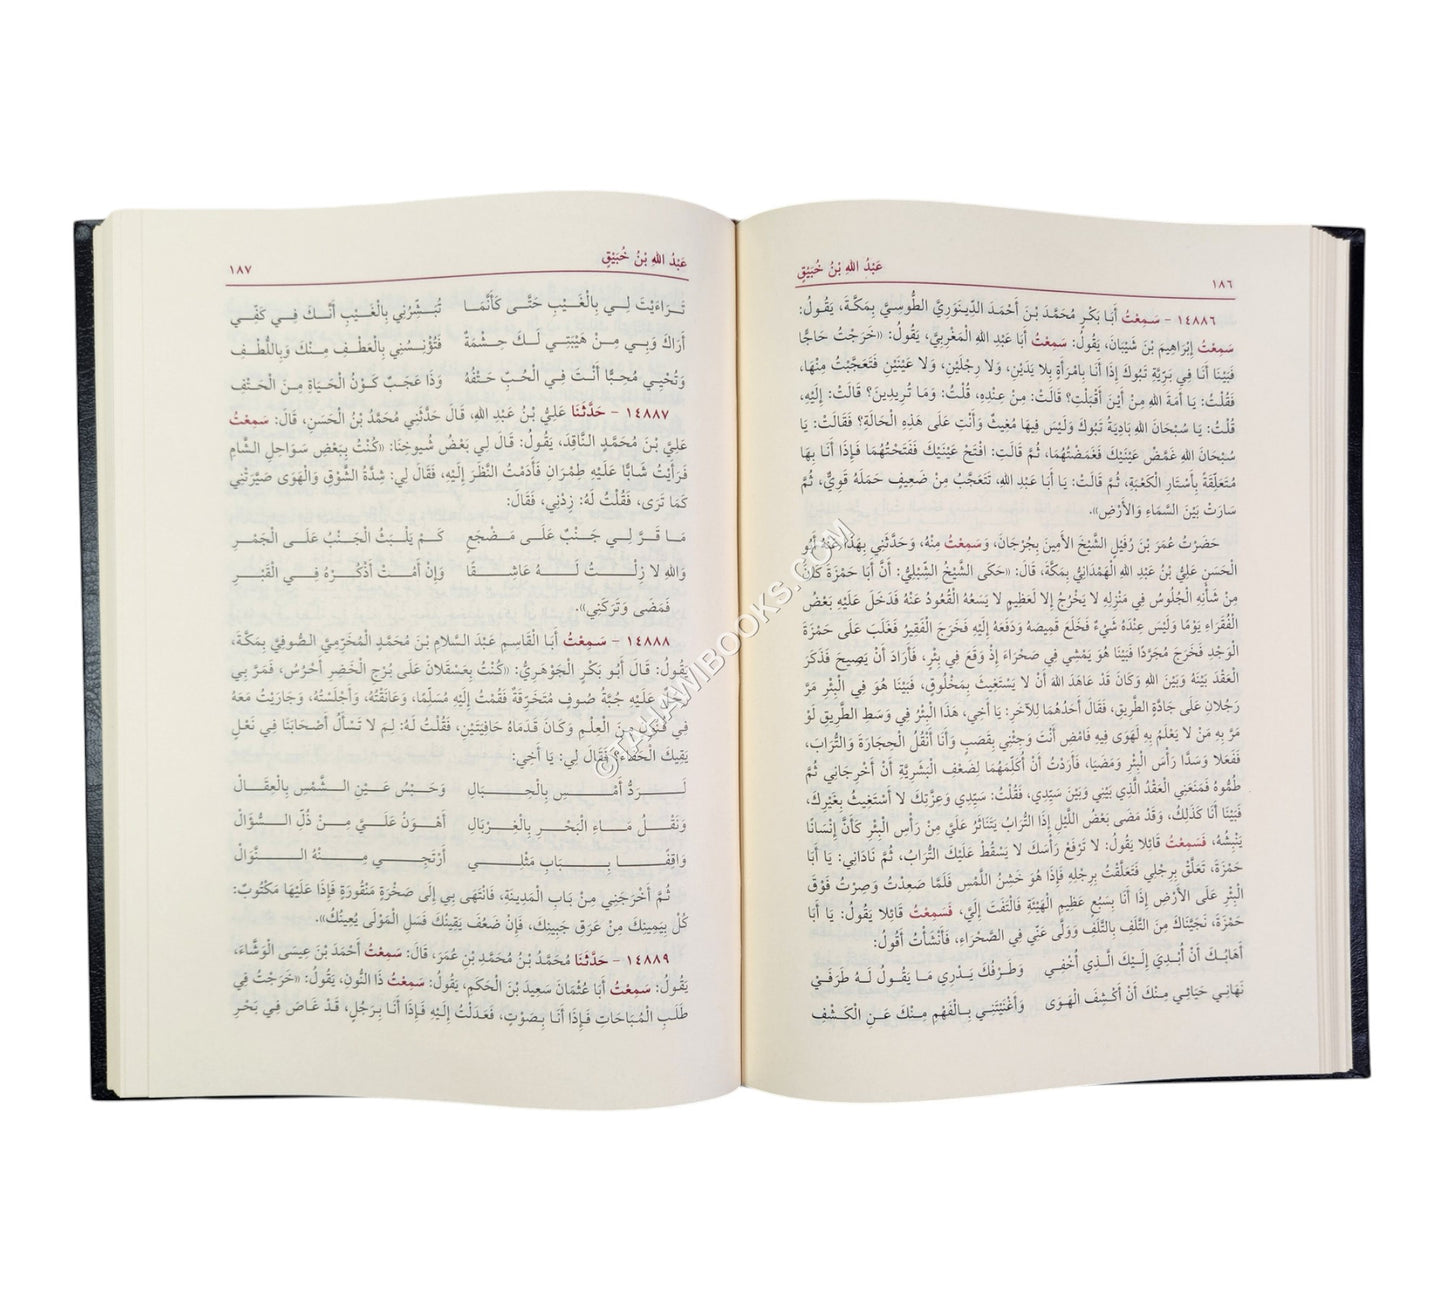 ١٨٦
عَبْدُ اللهِ بْنُ خُبَيْقٍ
١٤٨٨٦ - سَمِعْتُ أَبَا بَكْرٍ مُحَمَّدَ بْنَ أَحْمَدَ الدِّينَوَرِيَّ الطُّوسِيَّ بِمَكَّةَ، يَقُولُ:
سَمِعْتُ إِبْرَاهِيمَ بْنَ شَيْبَانَ، يَقُولُ: سَمِعْتُ أَبَا عَبْدِ اللهِ الْمَغْرِبِيَّ، يَقُولُ: «خَرَجْتُ حَاجًّا
فَبَيْنَا أَنَا فِي بَرِّيَّةِ تَبُوكَ إِذَا أَنَا بِامْرَأَةٍ بِلا يَدَيْنِ، وَلا رِجْلَيْنِ، وَلا عَيْنَيْنِ فَتَعَجَّبْتُ مِنْهَا،
فَقُلْتُ: يَا أَمَةَ اللهِ مِنْ أَيْنَ أَقْبَلْتِ؟ قَالَتْ: مِنْ عِنْدِهِ، قُلْتُ: وَمَا تُرِيدِينَ؟ قَالَتْ: إِلَيْهِ،
قُلْتُ: يَا سُبْحَانَ اللهِ بَادِيَةُ تَبُوكَ وَلَيْسَ فِيهَا مُغِيثٌ وَأَنْتِ عَلَى هَذِهِ الْحَالَةِ؟ فَقَالَتْ: يَا
سُبْحَانَ اللهِ غَمِّضْ عَيْنَيْكَ فَغَمَضْتُهُمَا، ثُمَّ قَالَتِ: افْتَحْ عَيْنَيْكَ فَفَتَحْتُهُمَا فَإِذَا أَنَا بِهَا
مُتَعَلِّقَةً بِأَسْتَارِ الْكَعْبَةِ، ثُمَّ قَالَتْ: يَا أَبَا عَبْدِ اللهِ، تَتَعَجَّبُ مِنْ ضَعِيفٍ حَمَلَهُ قَوِيٌّ، ثُمَّ
سَارَتْ بَيْنَ السَّمَاءِ وَالأَرْضِ».
حَضَرْتُ عُمَرَ بْنَ رُفَيْلٍ الشَّيْخَ الأَمِينَ بِجُرْجَانَ، وَسَمِعْتُ مِنْهُ، وَحَدَّثَنِي بِهَذَا عَنْهُ أَبُو
الْحَسَنِ عَلِيُّ بْنُ عَبْدِ اللهِ الْهَمْدَانِيُّ بِمَكَّةَ، قَالَ: «حَكَى الشَّيْخُ الشِّبْلِيُّ: أَنَّ أَبَا حَمْزَةَ كَانَ
مِنْ شَأْنِهِ الْجُلُوسُ فِي مَنْزِلِهِ لا يَخْرُجُ إِلا لَعَظِيمٍ لا يَسَعُهُ الْقُعُودُ عَنْهُ فَدَخَلَ عَلَيْهِ بَعْضُ
الْفُقَرَاءِ يَوْمًا وَلَيْسَ عِنْدَهُ شَيْءٌ فَخَلَعَ قَمِيصَهُ وَدَفَعَهُ إِلَيْهِ فَخَرَجَ الْفَقِيرُ فَغَلَبَ عَلَى حَمْزَةَ
الْوَجْدِ فَخَرَجَ مُجَرَّدًا فَبَيْنَا هُوَ يَمْشِي فِي صَحْرَاءَ إِذْ وَقَعَ فِي بِئْرٍ، فَأَرَادَ أَنْ يَصِيحَ فَذَكَرَ
الْعَقْدَ بَيْنَهُ وَبَيْنَ اللهِ وَكَانَ قَدْ عَاهَدَ اللهَ أَنْ لا يَسْتَغِيثَ بِمَخْلُوقٍ، فَبَيْنَا هُوَ فِي الْبِئْرِ مَرَّ
رَجُلانِ عَلَى جَادَّةِ الطَّرِيقِ، فَقَالَ أَحَدُهُمَا لِلآخَرِ: يَا أَخِي، هَذَا الْبِئْرُ فِي وَسَطِ الطَّرِيقِ لَوْ
مَرَّ بِهِ مَنْ لا يَعْلَمُ بِهِ لَهَوَى فِيهِ فَامْضِ أَنْتَ وَجِئْنِي بِقَصَبٍ وَأَنَا أَنْقُلُ الْحِجَارَةَ وَالتُّرَابَ،
فَفَعَلا وَسَدَّا رَأْسَ الْبِئْرِ وَمَضَيَا، فَأَرَدْتُ أَنْ أُكَلِّمَهُمَا لِضَعْفِ الْبَشَرِيَّةِ أَنْ أَخْرِجَانِي ثُمَّ
طُمُّوهُ فَمَنَعَنِي الْعَقْدُ الَّذِي بَيْنِي وَبَيْنَ سَيِّدِي، فَقُلْتُ: سَيِّدِي وَعِزَّتِكَ لا أَسْتَغِيثُ بِغَيْرِكَ،
فَبَيْنَا أَنَا كَذَلِكَ، وَقَدْ مَضَى بَعْضُ اللَّيْلِ إِذَا التُّرَابُ يَتَنَاثَرُ عَلَيَّ مِنْ رَأْسِ الْبِئْرِ كَأَنَّ إِنْسَانًا
يَنْبِشُهُ، فَسَمِعْتُ قَائِلا يَقُولُ: لا تَرْفَعْ رَأْسَكَ لا يَسْقُطُ عَلَيْكَ التُّرَابُ، ثُمَّ نَادَانِي: يَا أَبَا
حَمْزَةَ، تَعَلَّقْ بِرِجْلِي فَتَعَلَّقْتُ بِرِجْلِهِ فَإِذَا هُوَ خَشِنُ اللَّمْسِ فَلَمَّا صَعِدْتُ وَصِرْتُ فَوْقَ
الْبِئْرِ عَلَى الأَرْضِ إِذَا أَنَا بِسَبُعٍ عَظِيمِ الْهَيْئَةِ فَالْتَفَتَ إِلَيَّ، فَسَمِعْتُ قَائِلا يَقُولُ: يَا أَبَا
حَمْزَةَ، نَجَّيْنَاكَ مِنَ التَّلَفِ بِالتَّلَفِ وَوَلَّى عَنِّي فِي الصَّحْرَاءِ، فَأَنْشَأْتُ أَقُولُ:
أَهَابُكَ أَنْ أُبْدِيَ إِلَيْكَ الَّذِي أُخْفِي وَطَرْفُكَ يَدْرِي مَا يَقُولُ لَهُ طَرَفَيْ
نَهَانِي حَيَائِي مِنْكَ أَنْ أَكْشِفَ الْهَوَى وَأَغْنَيْتَنِي بِالْفَهْمِ مِنْكَ عَنِ الْكَشْفِ
عَبْدُ اللهِ بْنُ خُبَيْقٍ
١٨٧
تَرَاءَيْتَ لِي بِالْغَيْبِ حَتَّى كَأَنَّمَا تُبَشِّرُنِي بِالْغَيْبِ أَنَّكَ فِي كَفِّي
أَرَاكَ وَبِي مِنْ هَيْبَتِي لَكَ حِشْمَةٌ فَتُؤْنِسُنِي بِالْعَطْفِ مِنْكَ وَبِاللُّطْفِ
وَتُحْيِي مُحِبًّا أَنْتَ فِي الْحُبِّ حَتْفُهُ وَذَا عَجَبٌ كَوْنُ الْحَيَاةِ مِنَ الْحَتْفِ
١٤٨٨٧ - حَدَّثَنَا عَلِيُّ بْنُ عَبْدِ اللهِ، قَالَ حَدَّثَنِي مُحَمَّدُ بْنُ الْحَسَنِ، قَالَ: سَمِعْتُ
عَلِيَّ بْنَ مُحَمَّدٍ النَّاقِدَ، يَقُولُ: قَالَ لِي بَعْضُ شُيوخِنَا: «كُنْتُ بِبَعْضِ سَوَاحِلِ الشَّامِ
فَرَأَيْتُ شَابًّا عَلَيْهِ طِمْرَانِ فَأَدَمْتُ النَّظَرَ إِلَيْهِ، فَقَالَ لِي: شِدَّةُ الشَّوْقِ وَالْهَوَى صَيَّرَتْنِي
كَمَا تَرَى، فَقُلْتُ لَهُ: زِدْنِي، فَقَالَ:
مَا قَرَّ لِي جَنْبٌ عَلَى مَضْجَعِ كَمْ يَلْبَثُ الْجَنْبُ عَلَى الْجَمْرِ
وَاللهِ لا زِلْتُ لَهُ عَاشِقًا وَإِنْ أَمُتْ أَذْكُرُهُ فِي الْقَبْرِ
فَمَضَى وَتَرَكَنِي».
١٤٨٨٨ - سَمِعْتُ أَبَا الْقَاسِمِ عَبْدَ السَّلامِ بْنَ مُحَمَّدٍ الْمُخَرِّمِيَّ الصُّوفِيَّ بِمَكَّةَ،
يَقُولُ: قَالَ أَبُو بَكْرٍ الْجَوْهَرِيُّ: «كُنْتُ بِعَسْقَلانَ عَلَى بُرْجِ الْخَضِرِ أَحْرُسُ، فَمَرَّ بِي
عَلَيْهِ جُبَّةُ صُوفٍ مُتَخَرِّقَةٌ فَقُمْتُ إِلَيْهِ مُسَلِّمًا، وَعَانَقْتُهُ، وَأَجْلَسْتُهُ، وَجَارَيْتُ مَعَهُ
فِي فُنُونٍ مِنَ الْعِلْمِ وَكَانَ قَدَمَاهُ حَافِيَتَيْنِ، فَقُلْتُ لَهُ: لِمَ لا تَسْأَلُ أَصْحَابَنَا فِي نَعْلٍ
يَقِيكَ الْحَفَاءَ؟ فَقَالَ لِي: يَا أَخِي:
لَرَدُّ أَمْسِ بِالْحِبَالِ وَحَبْسُ عَيْنِ الشَّمْسِ بِالْعِقَالِ
وَنَقْلُ مَاءِ الْبَحْرِ بِالْغِرْبَالِ أَهْوَنُ عَلَيَّ مِنْ ذُلِّ السُّؤَالْ
وَاقِفًا بِبَابِ مَثْلِي أَرْتَجِي مِنْهُ النَّوَالْ
ثُمَّ أَخْرَجَنِي مِنْ بَابِ الْمَدِينَةِ، فَانْتَهَى بِي إِلَى صَخْرَةٍ مَنْقُورَةٍ فَإِذَا عَلَيْهَا مَكْتُوبٌ:
كُلْ بِيَمِينِكَ مِنْ عَرَقِ جَبِينِكَ، فَإِنْ ضَعُفَ يَقِينُكَ فَسَلِ الْمَوْلَى يُعِينُكَ».
١٤٨٨٩ - حَدَّثَنَا مُحَمَّدُ بْنُ مُحَمَّدِ بْنِ عُمَرَ، قَالَ: سَمِعْتُ أَحْمَدَ بْنَ عِيسَى الْوَشَّاءَ،
يَقُولُ: سَمِعْتُ أَبَا عُثْمَانَ سَعِيدَ بْنَ الْحَكَمِ، يَقُولُ: سَمِعْتُ ذَا النُّونِ، يَقُولُ: «خَرَجْتُ فِي
طَلَبِ الْمُبَاحَاتِ فَإِذَا أَنَا بِصَوْتٍ، فَعَدَلْتُ إِلَيْهِ فَإِذَا أَنَا بِرَجُلٍ، قَدْ غَاصَ فِي بَحْرِ
©TAHAWIBOOKS.COM